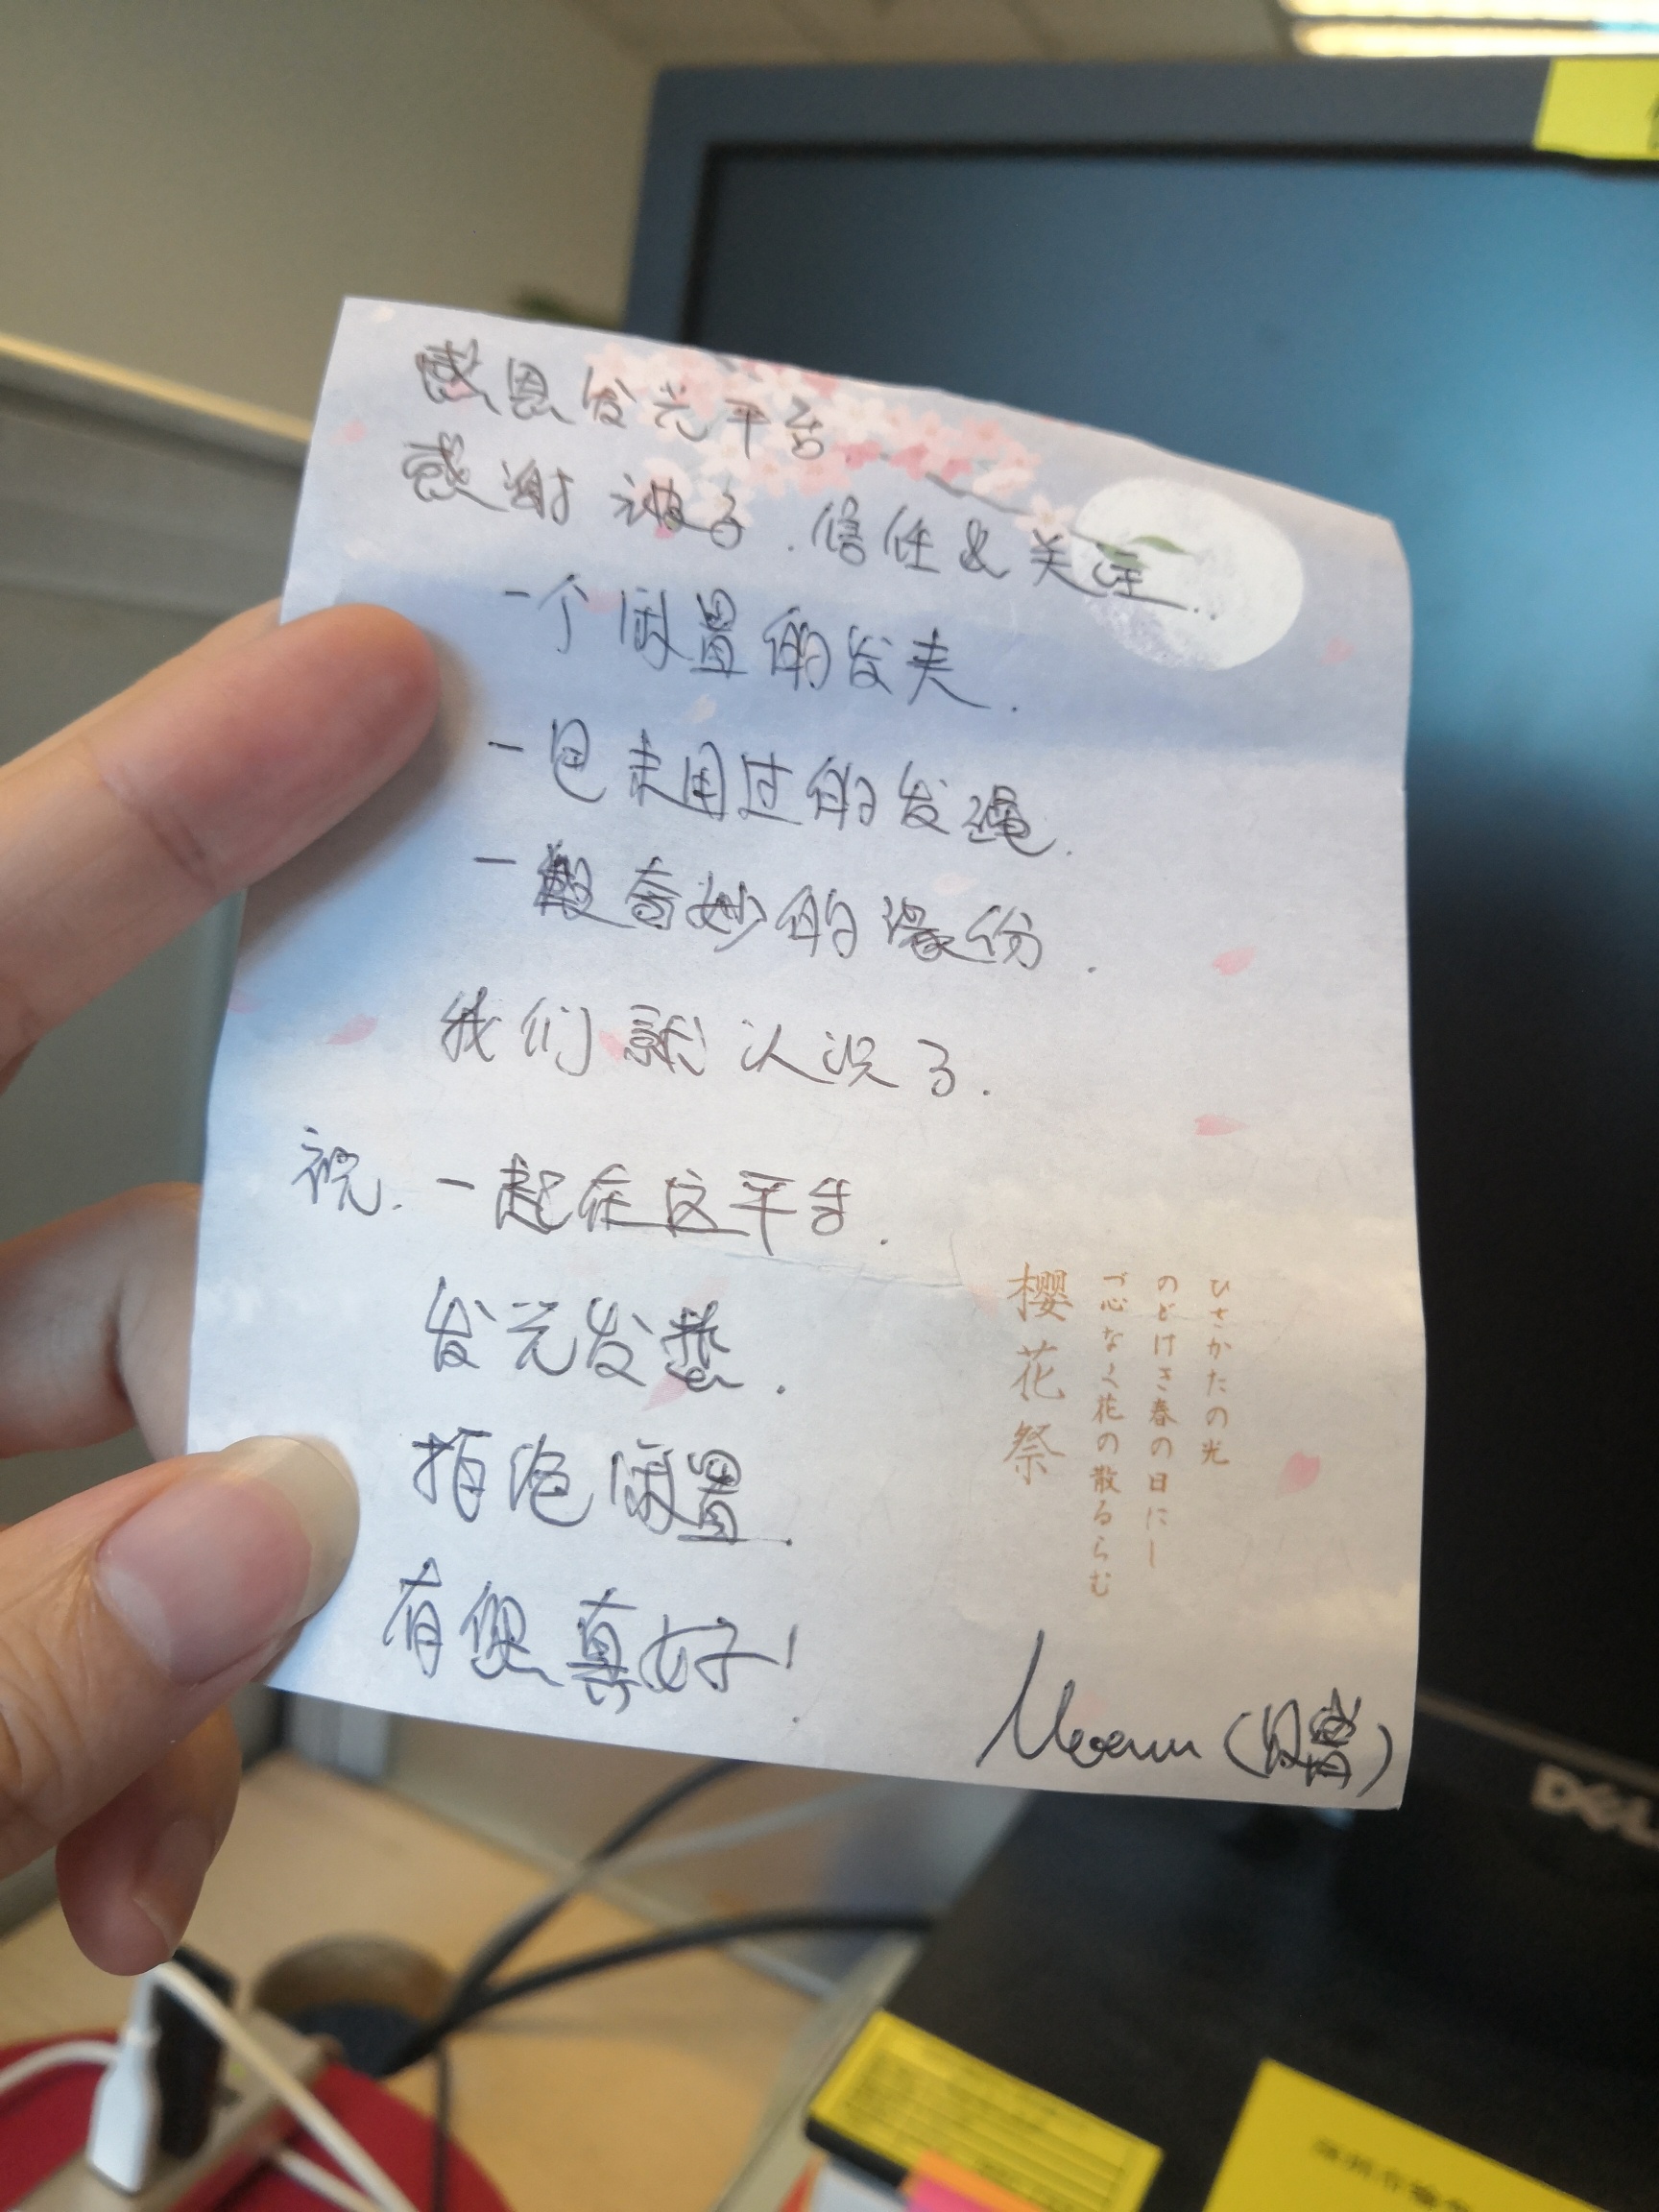 感恩发光平台
感谢被子.信任&关注.
一个闲置的发夹.
一包未用过的发绳.
一般奇妙的缘份.
我们就认识了.
祝.一起在这平台.
发光发热.
拒绝闲置.
有您真好!
ひさかたの光
のどけき春の日にし
づ心なく花の散るらむ
櫻花祭
(月
DELL